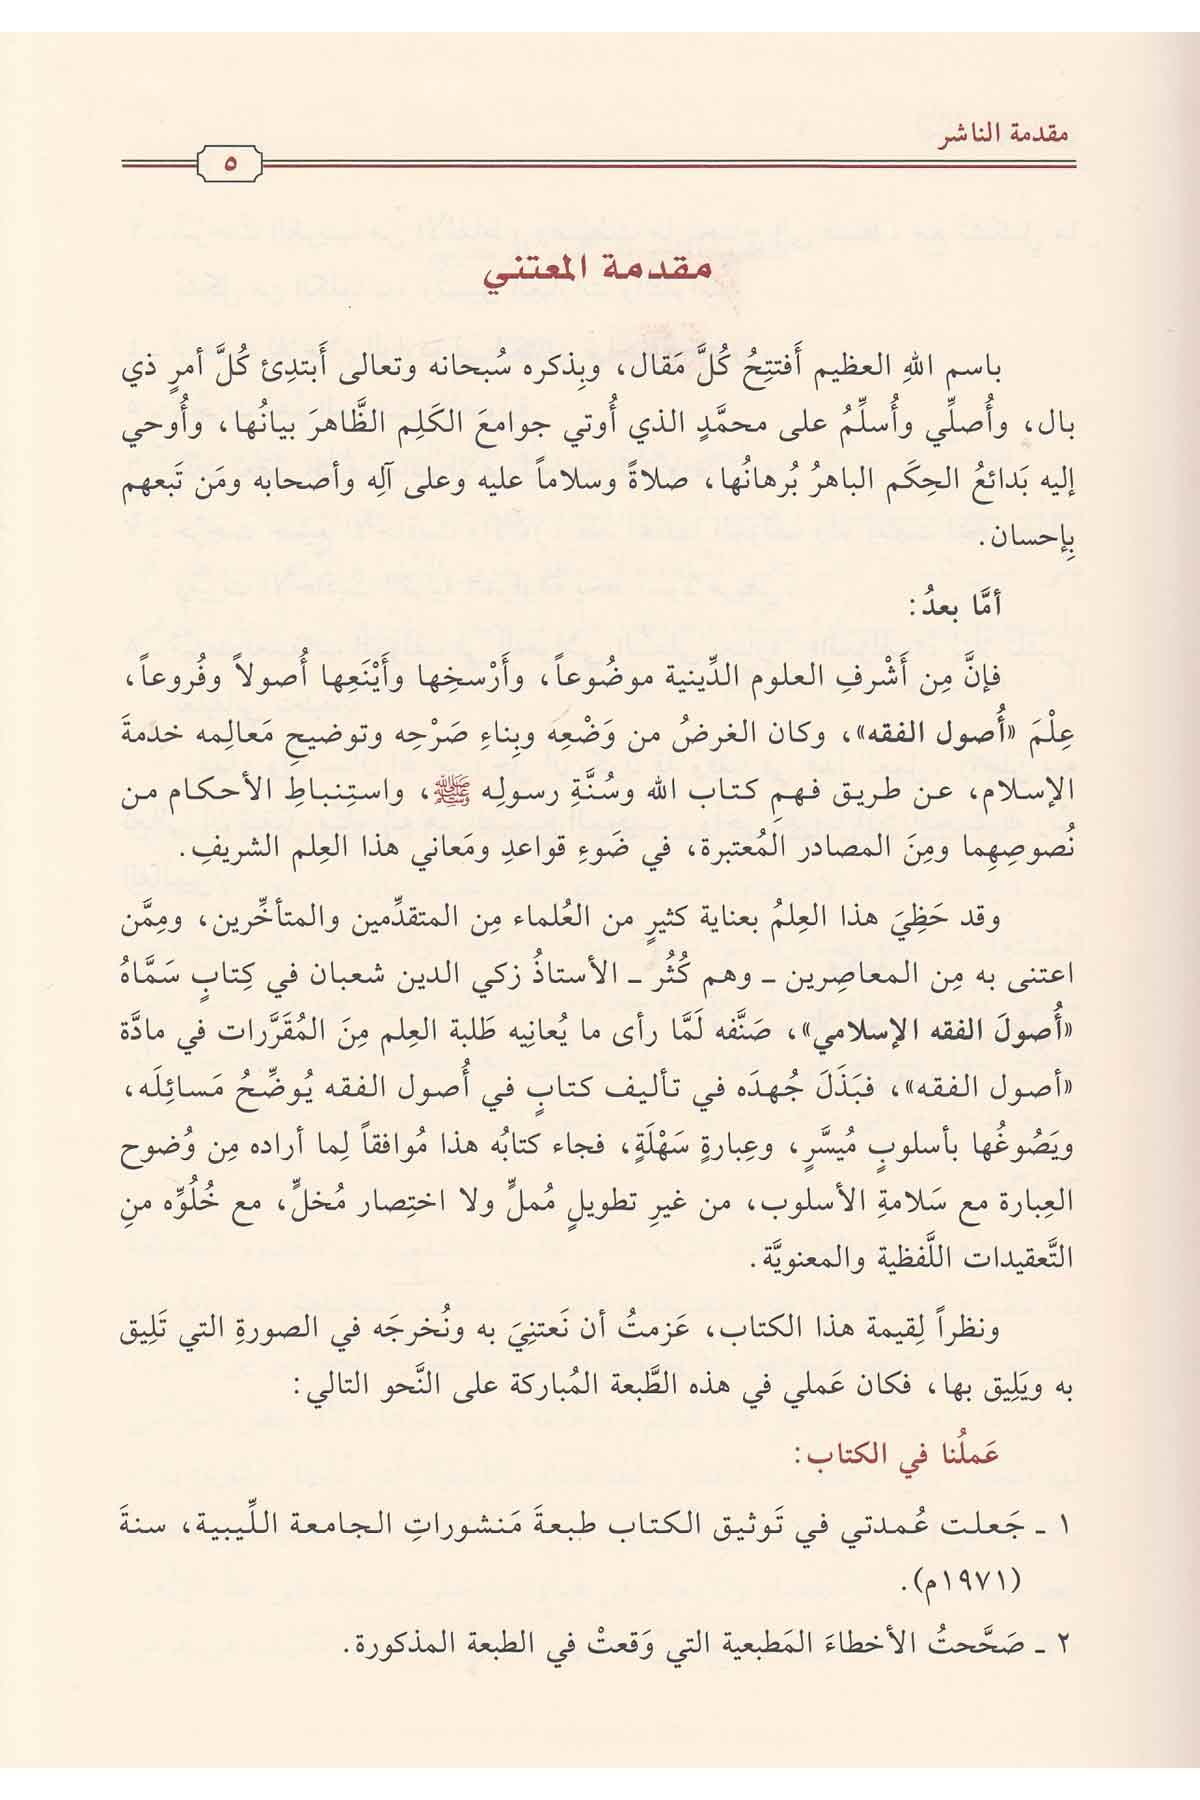 مقدمة الناشر
٥
مقدمة المعتني
باسم اللهِ العظيم أَفتتِحُ كُلَّ مَقال، وبِذكره سُبحانه وتعالى أَبتدِئ كُلَّ أمرٍ ذي
بال، وأُصلِّي وأُسلِّمُ على محمَّدٍ الذي أُوتي جوامعَ الكَلِم الظَّاهرَ بيانُها، وأُوحي
إليه بَدائعُ الحِكَم الباهرُ بُرهانُها، صلاةً وسلاماً عليه وعلى آلِه وأصحابه ومَن تَبعهم
بِإحسان.
أمَّا بعدُ:
فإنَّ مِن أَشْرفِ العلوم الدِّينية موضُوعاً، وأَرْسخِها وأَيْنَعِها أُصولاً وفُروعاً،
عِلْمَ «أُصول الفقه»، وكان الغرضُ من وَضْعِه وبِناءِ صَرْحِه وتوضيحِ مَعالِمه خدمةَ
الإسلام، عن طريق فهمِ كتاب الله وسُنَّةِ رسولِه ﷺ، واستِنباطِ الأحكام من
نُصوصِهِما ومِنَ المصادر المُعتبرة، في ضَوءِ قواعدِ ومَعاني هذا العِلم الشريفِ.
وقد حَظِيَ هذا العِلمُ بعناية كثيرٍ من العُلماء مِن المتقدِّمين والمتأخِّرين، ومِمَّن
اعتنى به مِن المعاصِرين ـ وهم كُثُر ـ الأستاذُ زكي الدين شعبان في كِتابٍ سَمَّاهُ
«أُصولَ الفقه الإسلامي»، صَنَّفه لَمَّا رأى ما يُعانِيه طَلبة العِلم مِنَ المُقَرَّرات في مادَّة
«أصول الفقه»، فبَذَلَ جُهدَه في تأليف كتابٍ في أُصول الفقه يُوضِّحُ مَسائِلَه،
ويَصُوغُها بأسلوبٍ مُيسَّرٍ، وعِبارةٍ سَهْلَةٍ، فجاء كتابُه هذا مُوافقاً لِما أراده مِن وُضوح
العِبارة مع سَلامةِ الأسلوب، من غيرِ تطويلٍ مُملٍّ ولا اختِصار مُخلٍّ، مع خُلُوِّه منِ
التَّعقيدات اللَّفظية والمعنويَّة.
ونظراً لِقيمة هذا الكتاب، عَزمتُ أن نَعتنِيَ به ونُخرجَه في الصورةِ التي تَلِيق
به ويَلِيق بها، فكان عَملي في هذه الطَّبعة المُباركة على النَّحو التالي:
عَملُنا في الكتاب:
١ ـ جَعلت عُمدتي في تَوثيق الكتاب طبعةَ مَنشوراتِ الجامعة اللِّيبية، سنةَ
(١٩٧١م).
٢ ـ صَحَّحتُ الأخطاءَ المَطبعية التي وَقعتْ في الطبعة المذكورة.